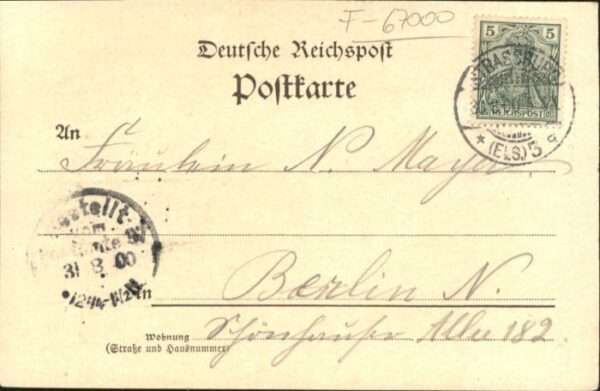 F-67000
Deutsche Reichspost
Postkarte
5 5
REICHSPOST
STRASSBURG
(ELS.) 5
An
Fräulein N. Mayer
Bestellt
vom
Postamte
31 8 00
in
Berlin N.
Wohnung
(Straße und Hausnummer)
Schönhauser Allee 182.